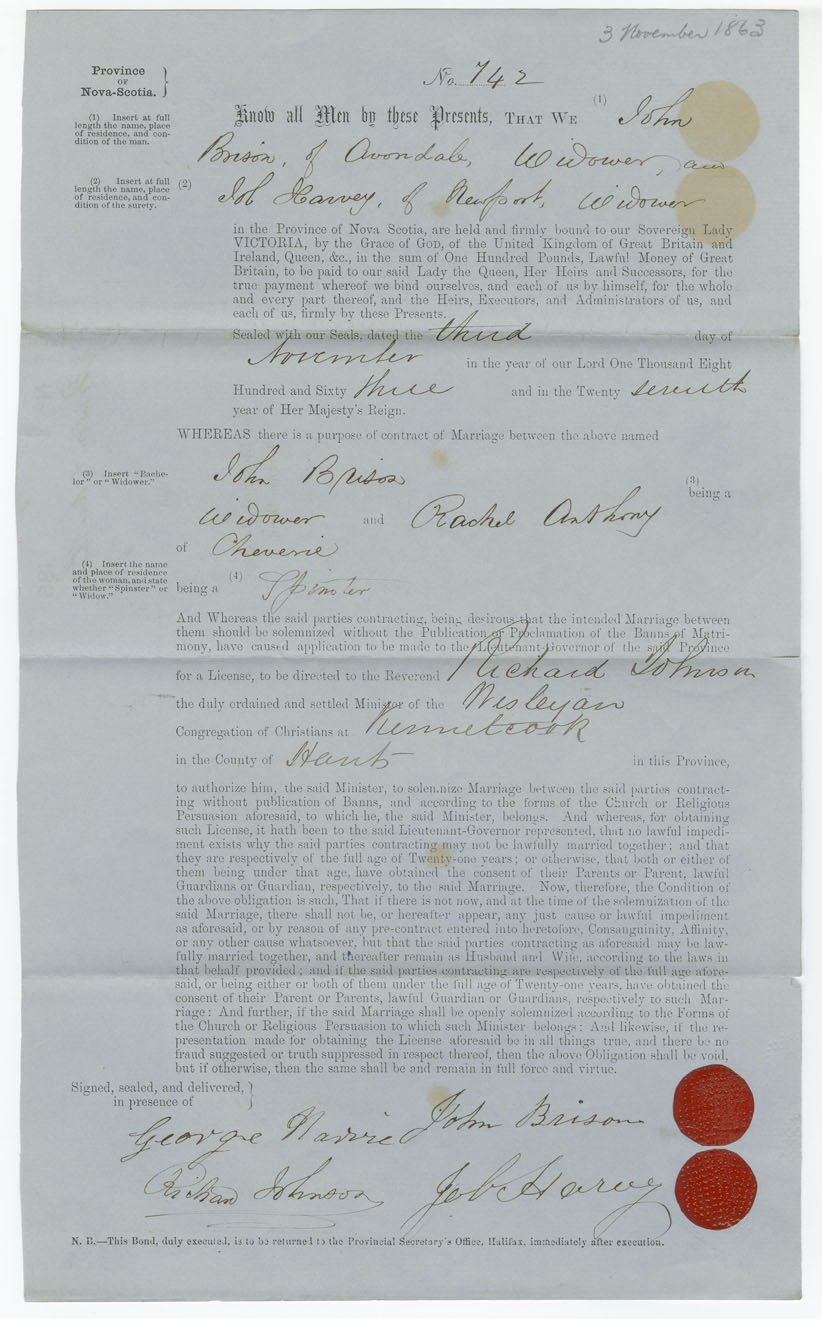 3 November 1863
Province
OF
Nova-Scotia.
No. 742
(1) Insert at full
length the name, place
of residence, and con-
dition of the man.
Know all Men by these Presents, THAT WE (1) John
Brison, of Avondale, Widower, and
(2) Insert at full
length the name, place
of residence, and con-
dition of the surety.
(2) Job Harvey, of Newport, Widower
in the Province of Nova Scotia, are held and firmly bound to our Sovereign Lady
VICTORIA, by the Grace of GOD, of the United Kingdom of Great Britain and
Ireland, Queen, &c., in the sum of One Hundred Pounds, Lawful Money of Great
Britain, to be paid to our said Lady the Queen, Her Heirs and Successors, for the
true payment whereof we bind ourselves, and each of us by himself, for the whole
and every part thereof, and the Heirs, Executors, and Administrators of us, and
each of us, firmly by these Presents.
Sealed with our Seals, dated the third day of
November in the year of our Lord One Thousand Eight
Hundred and Sixty three and in the Twenty seventh
year of Her Majesty's Reign.
WHEREAS there is a purpose of contract of Marriage between the above named
(3) Insert "Bache-
lor" or "Widower."
John Brison (3) being a
Widower and Rachel Anthony
of Cheverie
(4) Insert the name
and place of residence
of the woman, and state
whether "Spinster" or
"Widow."
being a (4) Spinster
And Whereas the said parties contracting, being desirous that the intended Marriage between
them should be solemnized without the Publication or Proclamation of the Banns of Matri-
mony, have caused application to be made to the Lieutenant-Governor of the said Province
for a License, to be directed to the Reverend Richard Johnson
the duly ordained and settled Minister of the Wesleyan
Congregation of Christians at Kennetcook
in the County of Hants in this Province,
to authorize him, the said Minister, to solemnize Marriage between the said parties contract-
ing without publication of Banns, and according to the forms of the Church or Religious
Persuasion aforesaid, to which he, the said Minister, belongs. And whereas, for obtaining
such License, it hath been to the said Lieutenant-Governor represented, that no lawful impedi-
ment exists why the said parties contracting may not be lawfully married together; and that
they are respectively of the full age of Twenty-one years; or otherwise, that both or either of
them being under that age, have obtained the consent of their Parents or Parent, lawful
Guardians or Guardian, respectively, to the said Marriage. Now, therefore, the Condition of
the above obligation is such, That if there is not now, and at the time of the solemnization of the
said Marriage, there shall not be, or hereafter appear, any just cause or lawful impediment
as aforesaid, or by reason of any pre-contract entered into heretofore, Consanguinity, Affinity,
or any other cause whatsoever, but that the said parties contracting as aforesaid may be law-
fully married together, and thereafter remain as Husband and Wife, according to the laws in
that behalf provided; and if the said parties contracting are respectively of the full age afore-
said, or being either or both of them under the full age of Twenty-one years, have obtained the
consent of their Parent or Parents, lawful Guardian or Guardians, respectively to such Mar-
riage: And further, if the said Marriage shall be openly solemnized according to the Forms of
the Church or Religious Persuasion to which such Minister belongs: And likewise, if the re-
presentation made for obtaining the License aforesaid be in all things true, and there be no
fraud suggested or truth suppressed in respect thereof, then the above Obligation shall be void,
but if otherwise, then the same shall be and remain in full force and virtue.
Signed, sealed, and delivered,
in presence of
George John Brison
Richard Johnson Job Harvey
N. B.—This Bond, duly executed, is to be returned to the Provincial Secretary's Office, Halifax, immediately after execution.